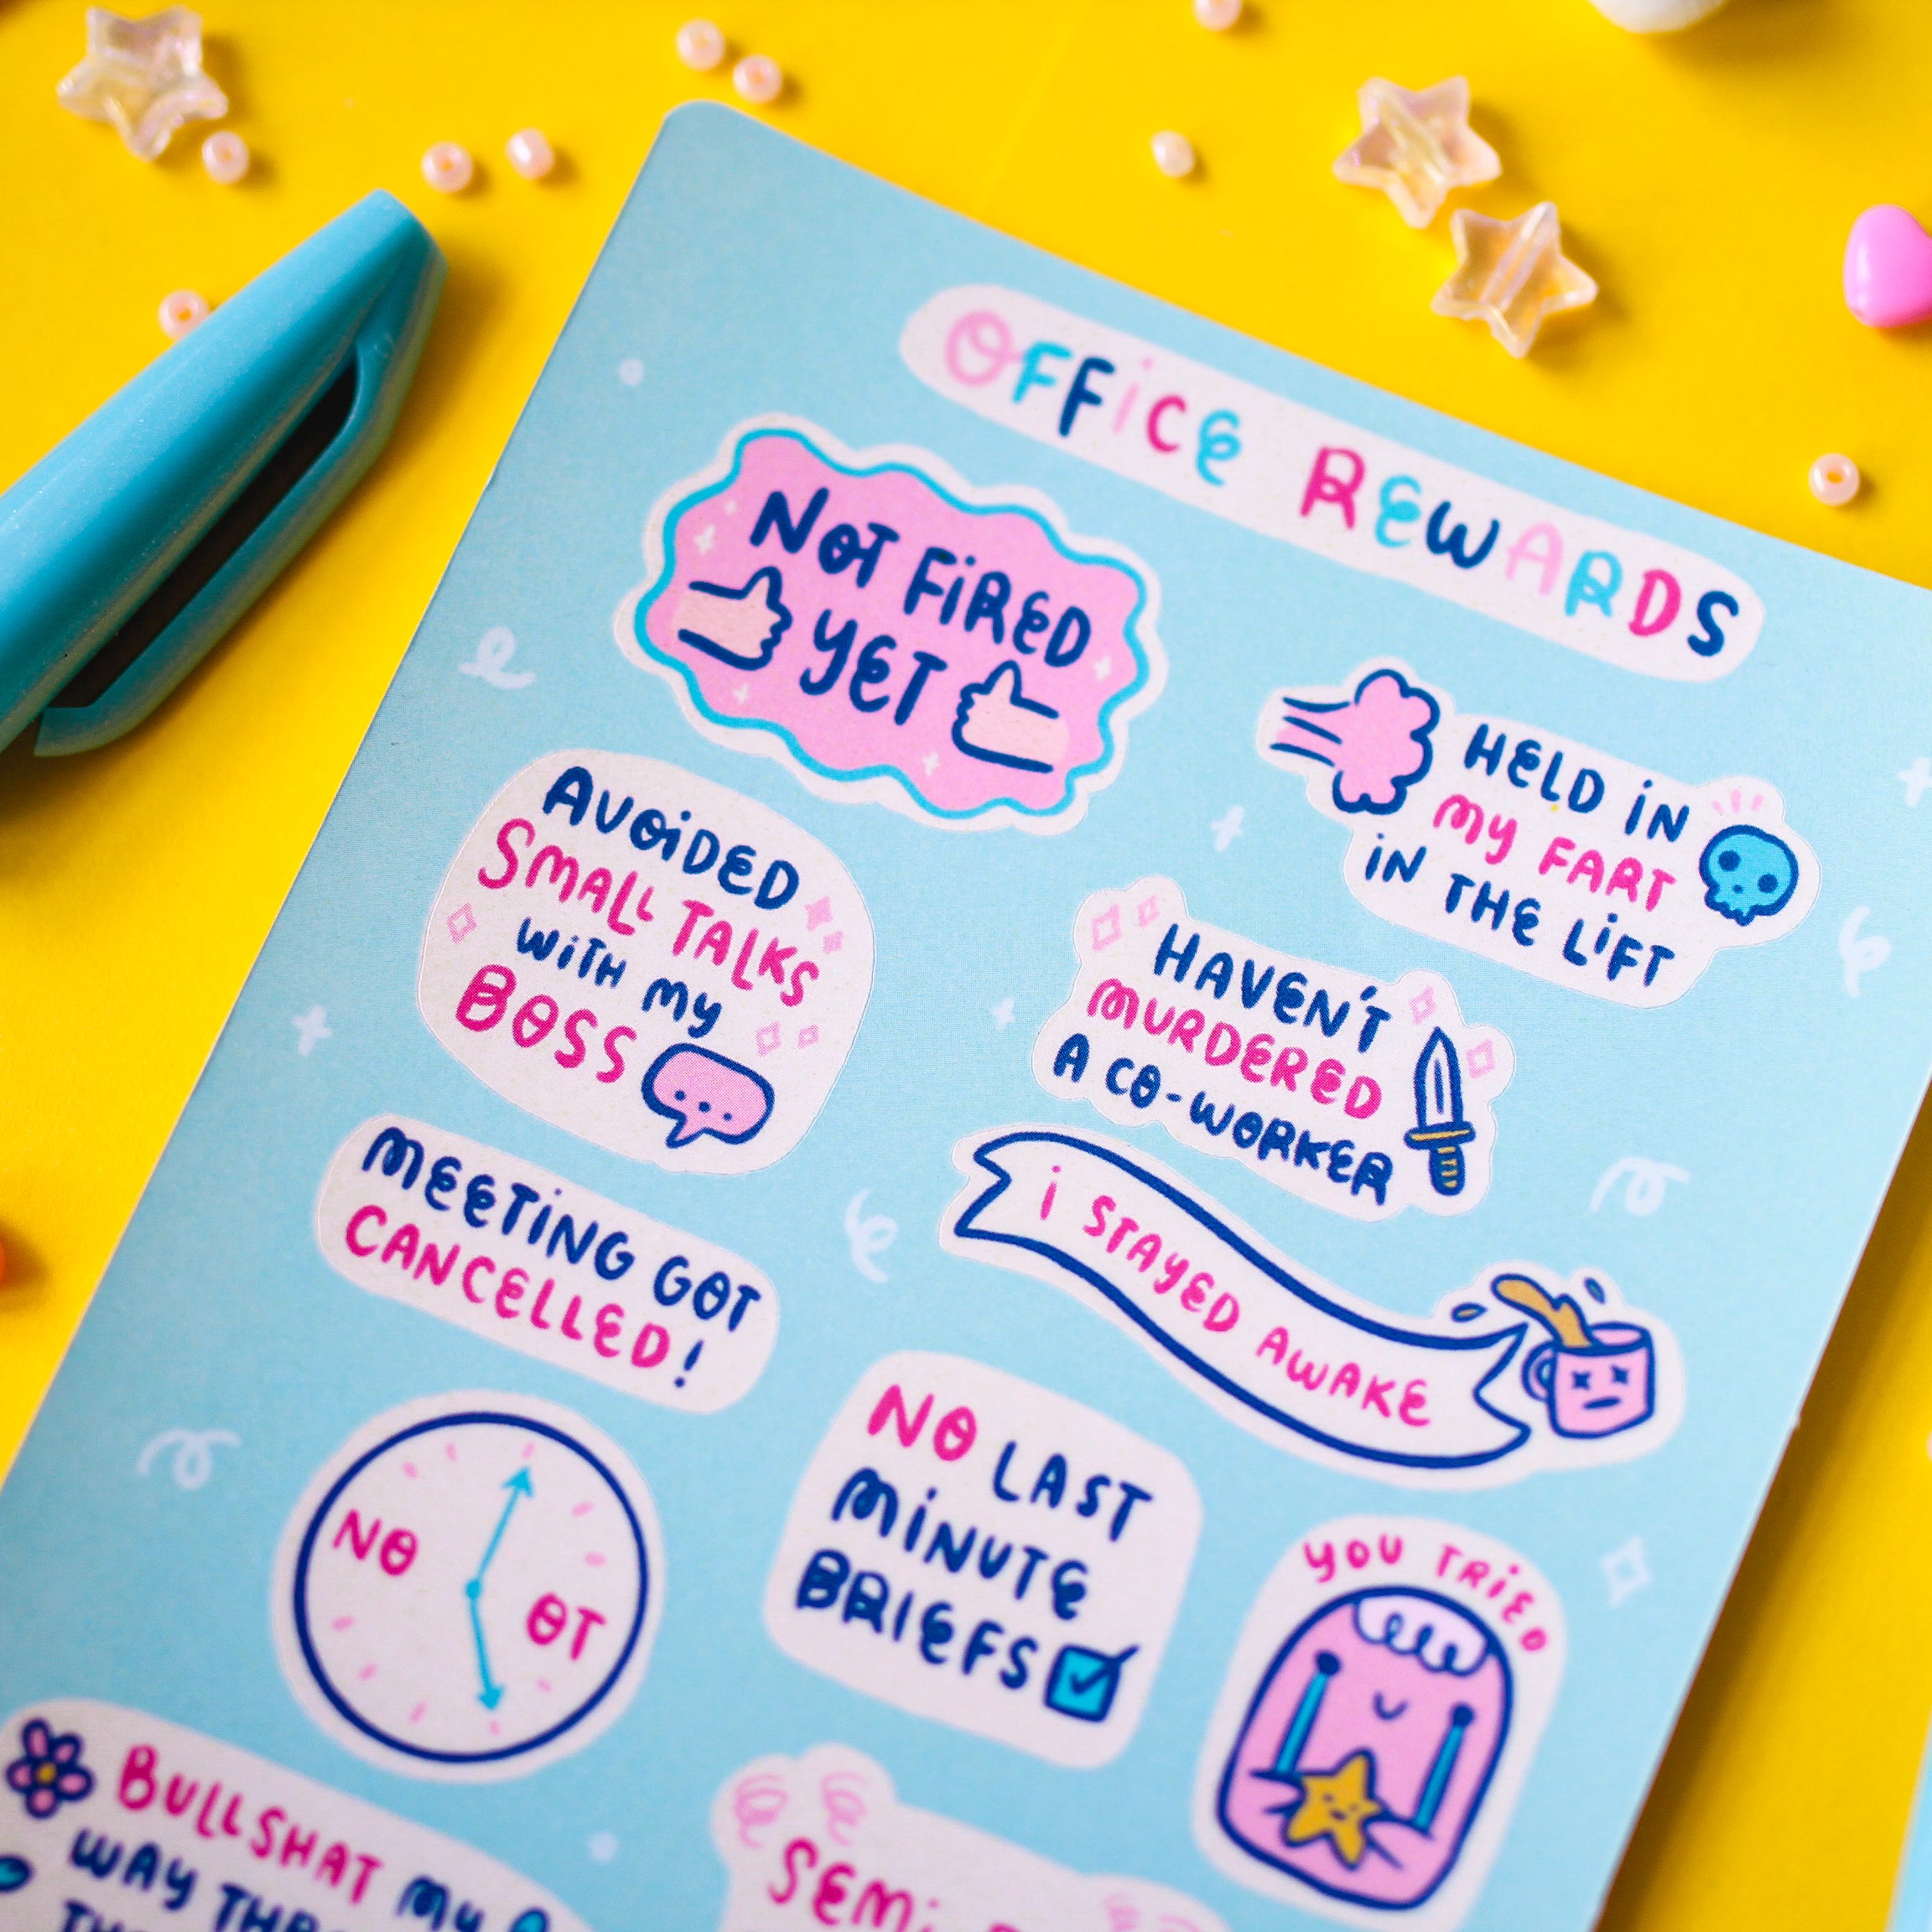 OFFICE REWARDS
NOT FIRED
YET
HELD IN
MY FART
IN THE LIFT
AVOIDED
SMALL TALKS
WITH MY
BOSS
HAVEN'T
MURDERED
A CO-WORKER
MEETING GOT
CANCELLED!
I STAYED AWAKE
NO OT
NO LAST
MINUTE
BRIEFS
YOU TRIED
BULLSHAT MY
WAY